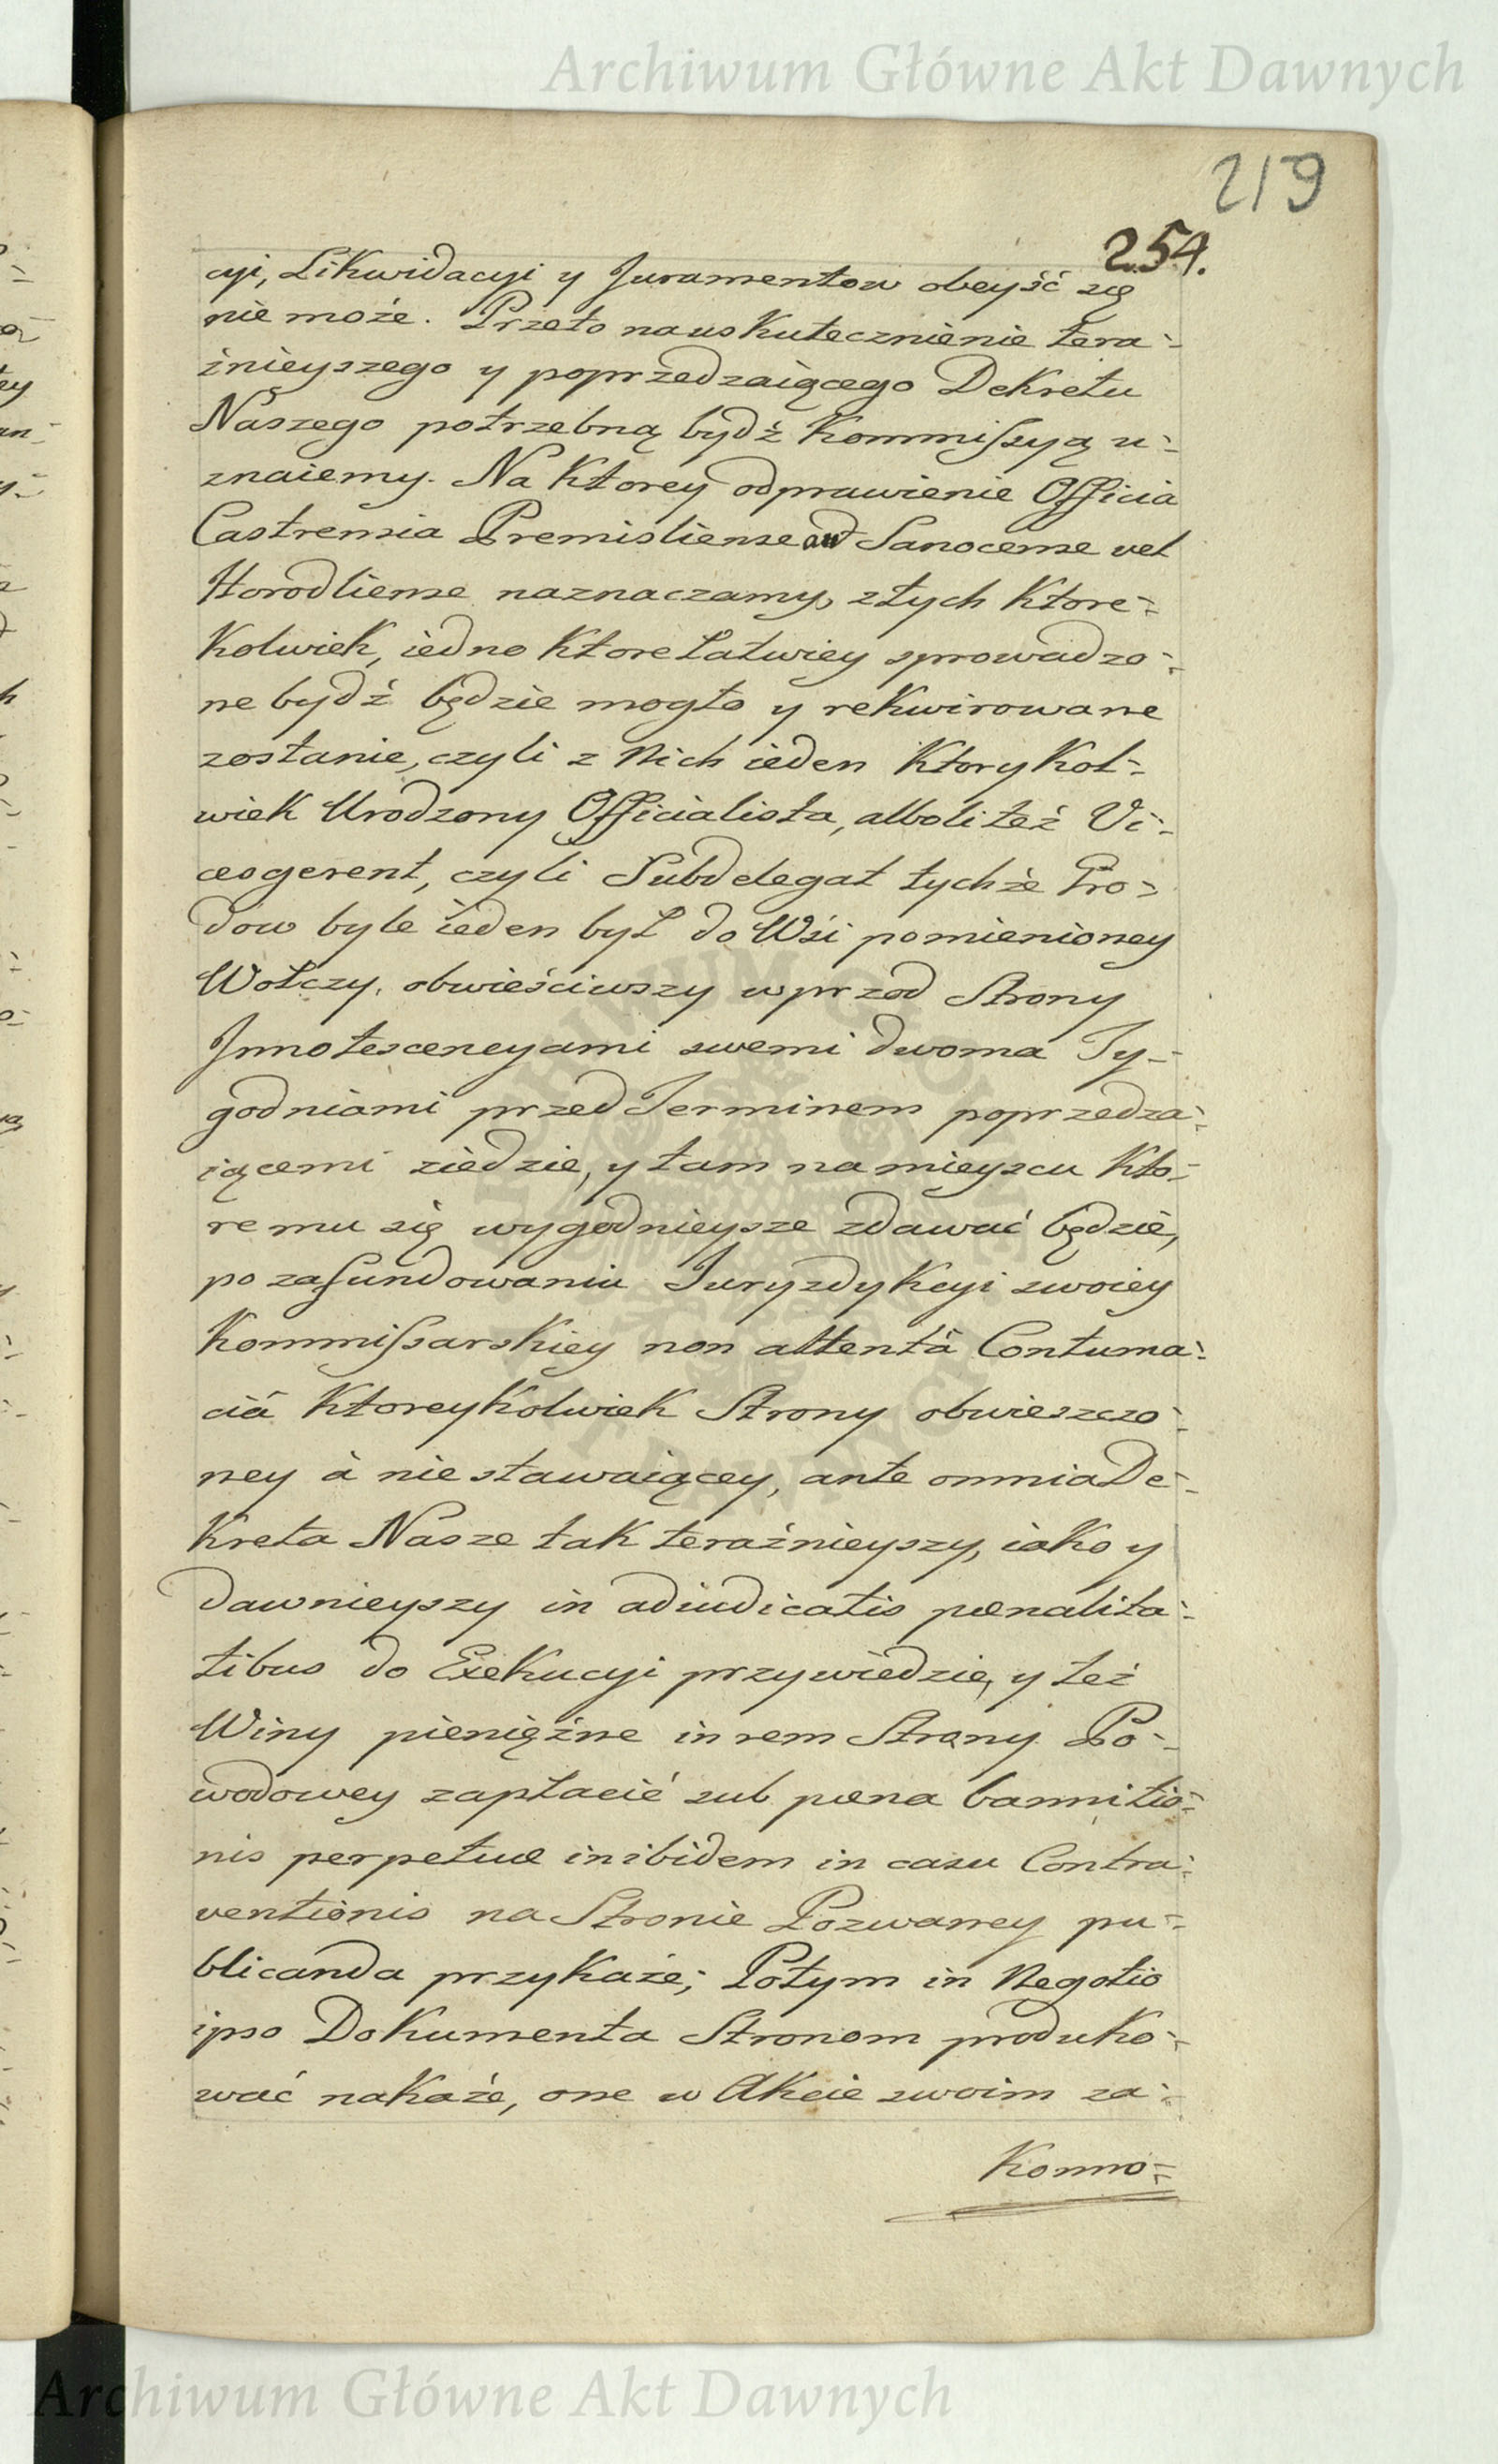 Archiwum Główne Akt Dawnych
219
254.
cyi, Likwidacyi y Juramentow obeyść się
nie może. Przeto na uskutecznienie tera=
źnieyszego y poprzedzaiącego Dekretu
Naszego potrzebną bydź Kommissyą u=
znaiemy. Na Ktorey odprawienie Officia
Castrensia Premisliense aut Sanocense vel
Horodliense naznaczamy, z tych Ktore=
Kolwiek, iedno Ktore Łatwiey sprowadzo=
ne bydź będzie mogło y reKwirowane
zostanie, czyli z Nich ieden KtoryKol=
wiek Urodzony Officialista, alboli też Vi=
cesgerent, czyli Subdelegat tychże Gro=
dow byle ieden był do Wsi pomienioney
Wołczy, obwieściwszy wprzod Strony
Innotescencyami swemi dwoma Ty=
godniami przed Terminem poprzedza=
iącemi ziedzie, y tam na mieyscu Kto=
remu się wygodnieysze zdawać będzie,
po zafundowaniu JuryzdyKcyi swoiey
KommissarsKiey non attentâ Contuma=
ciâ KtoreyKolwieK Strony obwieszczo=
ney à nie stawaiącey, ante omnia De=
Kreta Nasze taK teraźnieyszy, iaKo y
dawnieyszy in adiudicatis pœnalita=
tibus do ExeKucyi przywiedzie, y też
Winy pieniężne in rem Strony Po=
wodowey zapłacić sub pœna bannitio=
nis perpetuæ inibidem in casu Contra=
ventionis na Stronie Pozwaney pu=
blicanda przyKaże; Potym in Negotio
ipso DoKumenta Stronom produKo=
wać naKaże, one w AKcie swoim za=
Konno=
Archiwum Główne Akt Dawnych